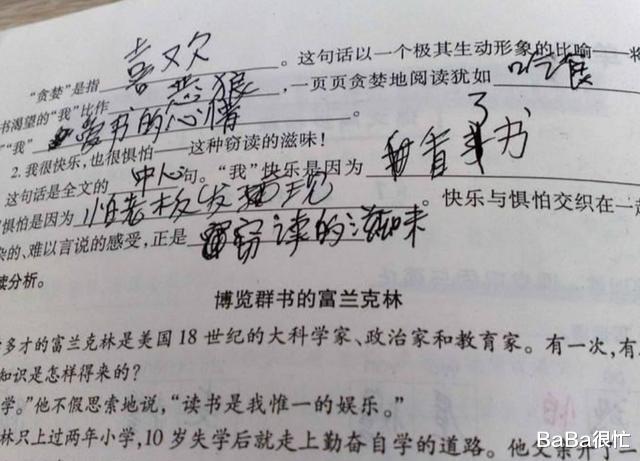 "贪婪"是指 喜欢 。这句话以一个极其生动形象的比喻——将
书渴望的"我"比作 恶狼 ,一页页贪婪地阅读犹如 吃食
了"我" 爱书的心情 。
2. 我很快乐,也很惧怕——这种窃读的滋味!
这句话是全文的 中心 句。"我"快乐是因为 看了书
惧怕是因为 怕老板发现 。快乐与惧怕交织在一起
杂的、难以言说的感受,正是 窃读的滋味
读分析。
博览群书的富兰克林
多才的富兰克林是美国18世纪的大科学家、政治家和教育家。有一次,有
知识是怎样得来的?
学。"他不假思索地说,"读书是我惟一的娱乐。"
林只上过两年小学,10岁失学后就走上勤奋自学的道路。他父亲开了二
BaBa很忙